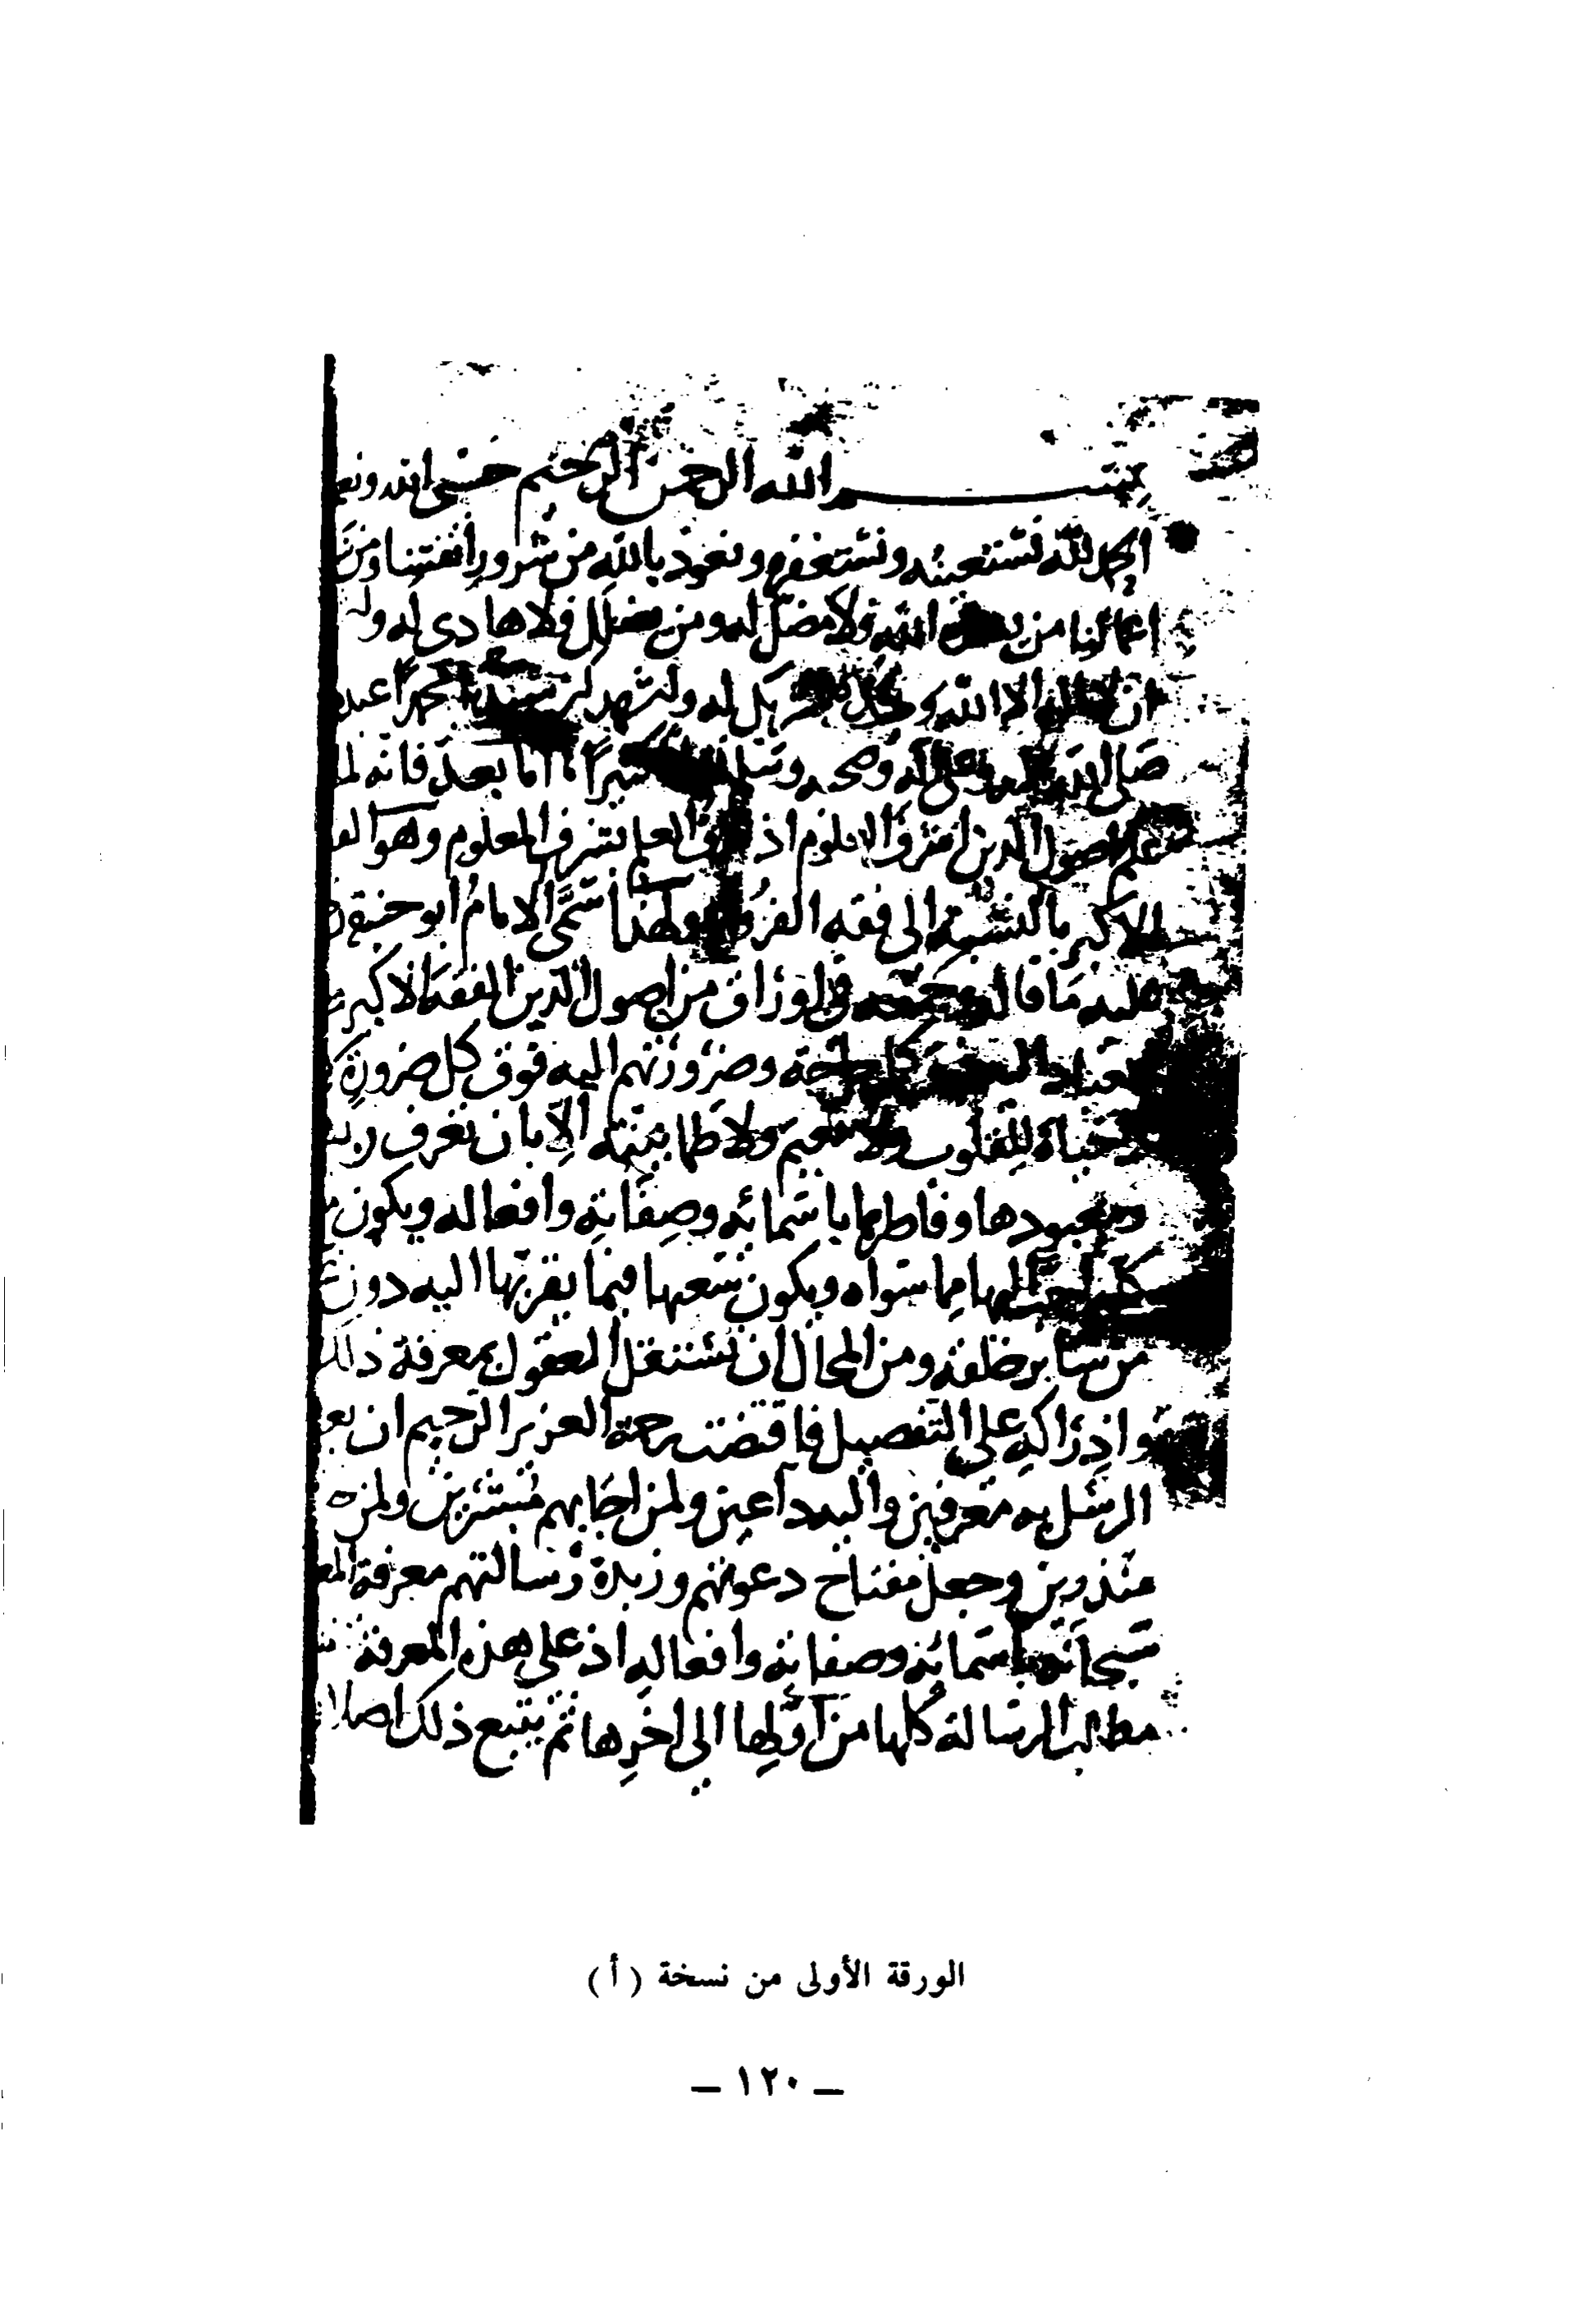 بسم الله الرحمن الرحيم حسبي الله ونعم
الحمد لله نستعينه ونستغفره ونعوذ بالله من شرور انفسنا ومن
اعمالنا من الله فلا مضل له ومن يضلل فلا هادي له
ان لا اله الا الله وحده لا شريك له ونشهد ان سيدنا محمدا
صلى الله عليه وعلى اله وصحبه وسلم كثيرا اما بعد فانه لما
علم اصول الدين اشرف العلوم اذ شرف العلم بشرف المعلوم وهو
الاكبر بالنسبة الى فقه الفروع ولهذا سمى الامام ابو حنيفة
عليه ما قاله وجمعه في اوراق من اصول الدين الفقه الاكبر
كل حاجة وضرورتهم اليه فوق كل ضرورة
حياة للقلوب ولا نعيم ولا طمانينة الا بان تعرف
ومعبودها وفاطرها باسمائه وصفاته وافعاله ويكون
احب اليها مما سواه ويكون سعيها فيما يقربها اليه دون
من سائر خلقه ومن المحال ان تستقل العقول بمعرفة ذلك
وادراكه على التفصيل فاقتضت رحمة العزيز الرحيم ان
الرسل به معرفين واليه داعين ولمن اجابهم مبشرين ولمن
منذرين وجعل مفتاح دعوتهم وزبدة رسالتهم معرفة
سبحانه باسمائه وصفاته وافعاله اذ على هذه المعرفة
مطالب الرسالة كلها من اولها الى اخرها ثم يتبع ذلك اصلان
الورقة الأولى من نسخة (أ)
— ١٢٠ —